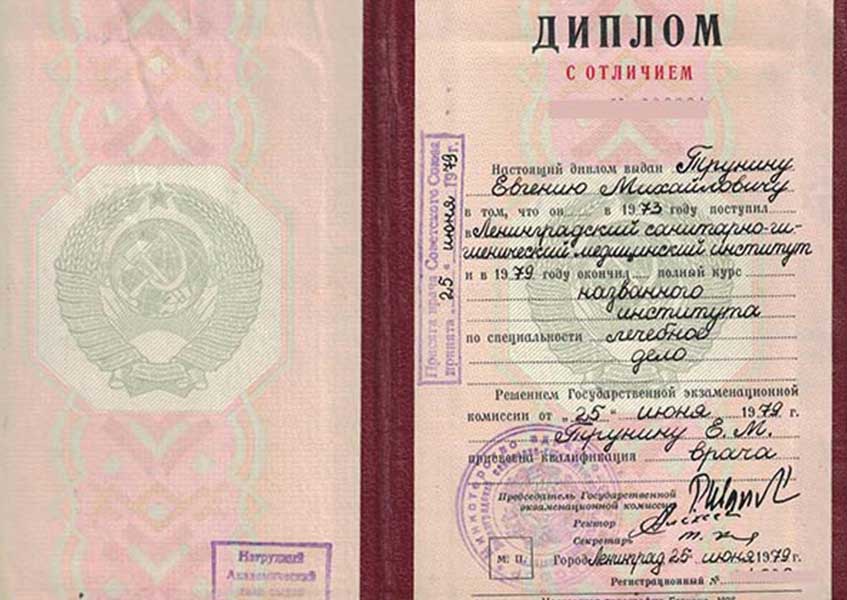 ДИПЛОМ
С ОТЛИЧИЕМ
Настоящий диплом выдан Трунину
Евгению Михайловичу
в том, что он в 1973 году поступил
в Ленинградский санитарно-ги-
гиенический медицинский институт
и в 1979 году окончил полный курс
названного
института
по специальности лечебное
дело
Решением Государственной экзаменационной
комиссии от „25“ июня 1979 г.
Трунину Е. М.
присвоена квалификация врача
Председатель Государственной
экзаменационной комиссии
Ректор
Секретарь
М. П. Город Ленинград 25 июня 1979 г.
Регистрационный №
Присяга врача Советского Союза
принята „25“ июня 1979 г.
Нагрудный
Академический